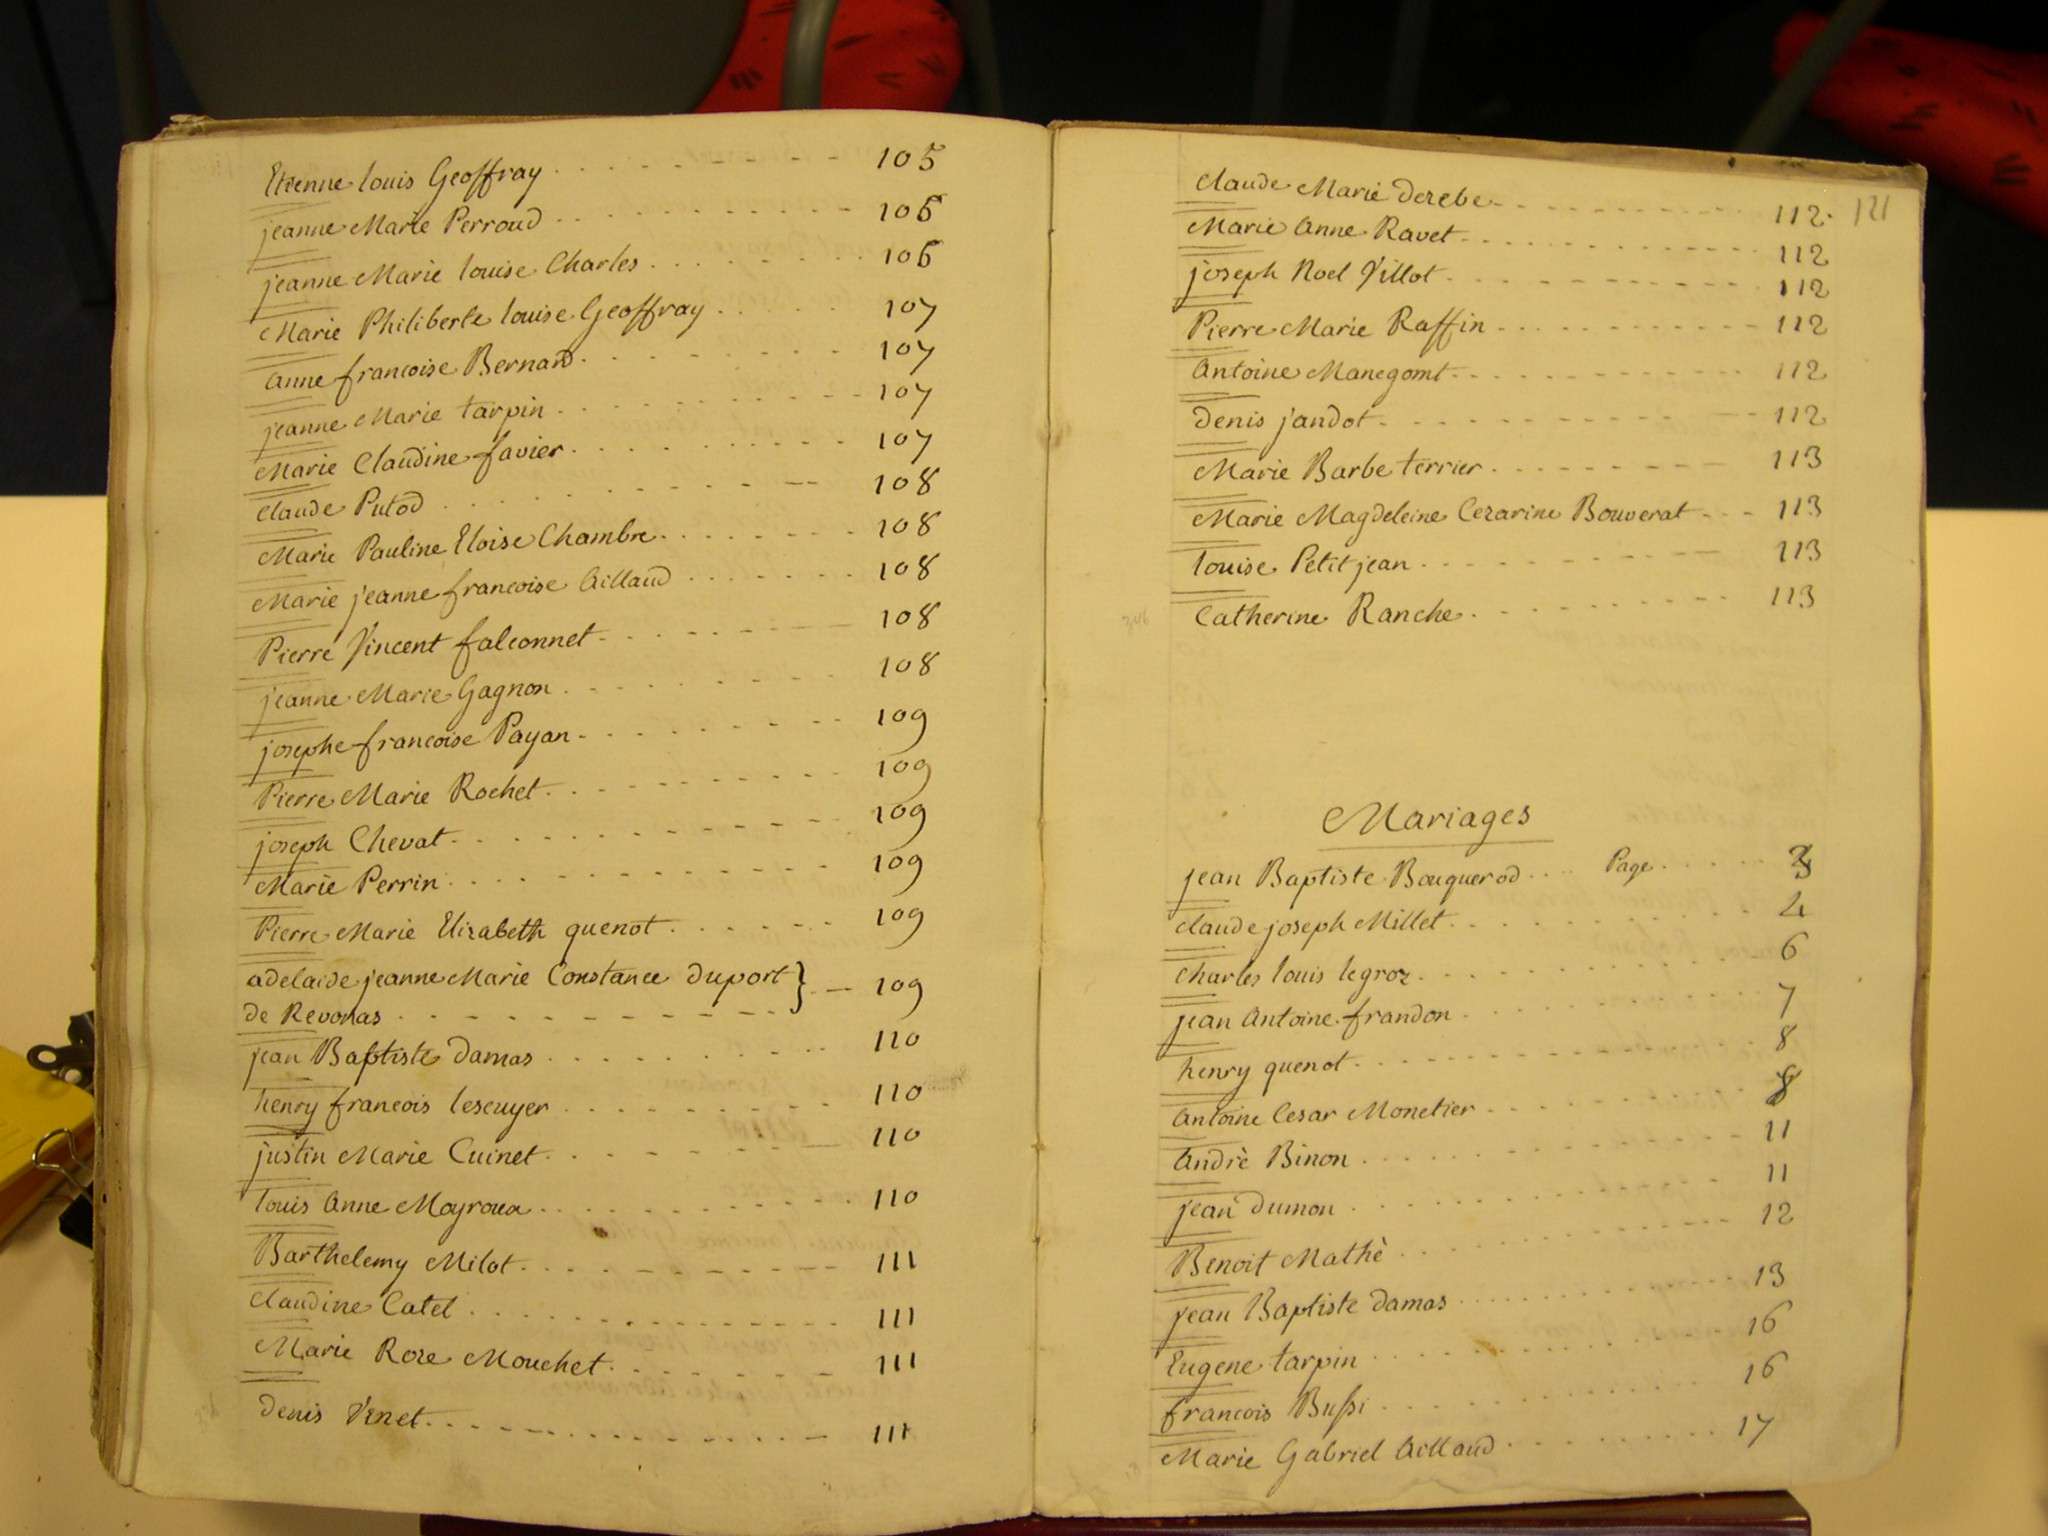 Etienne louis Geoffray 105
jeanne Marie Perroud 106
jeanne Marie louise Charles 106
Marie Philiberte louise Geoffray 107
anne francoise Bernard 107
jeanne Marie tarpin 107
Marie Claudine favier 107
Claude Putod 108
Marie Pauline Eloise Chambre 108
Marie jeanne francoise Aillaud 108
Pierre Vincent falconnet 108
jeanne Marie Gagnon 108
josephe francoise Payan 109
Pierre Marie Rochet 109
joseph Chevat 109
Marie Perrin 109
Pierre Marie Elizabeth quenot 109
adelaide jeanne Marie Constance duport } 109
de Revonas
jean Baptiste damas 110
henry francois lescuyer 110
justin Marie Cuinet 110
louis Anne Moyroux 110
Barthelemy Milot 111
Claudine Catel 111
Marie Roze Mouchet 111
denis Venet 111
121
Claude Marie dezebe 112
Marie Anne Ravet 112
joseph Noel Villot 112
Pierre Marie Raffin 112
Antoine Manegomt 112
denis jandot 112
Marie Barbe terrier 113
Marie Magdeleine Cezarine Bouverat 113
louise Petit jean 113
Catherine Ranche 113
Mariages
jean Baptiste Bouquerod Page 3
Claude joseph Millet 4
Charles louis legroz 6
jean Antoine frandon 7
henry quenot 8
Antoine Cesar Monetier 8
Andrè Binon 11
jean dumon 11
Benoit Mathè 12
jean Baptiste damas 13
Eugene tarpin 16
francois Bussi 16
Marie Gabriel Aillaud 17